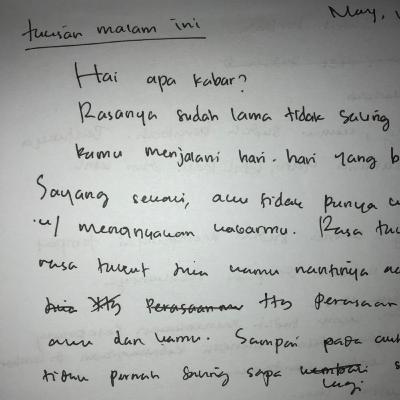 tulisan malam ini
May,
Hai apa kabar?
Rasanya sudah lama tidak saling
kamu menjalani hari-hari yang b
Sayang sekali, aku tidak punya
u/ menanyakan kabarmu. Rasa
rasa takut jika kamu nantinya
jika ttg Perasaanmu ttg perasaan
aku dan kamu. Sampai pada
titik pernah saling sapa kembali s
lagi